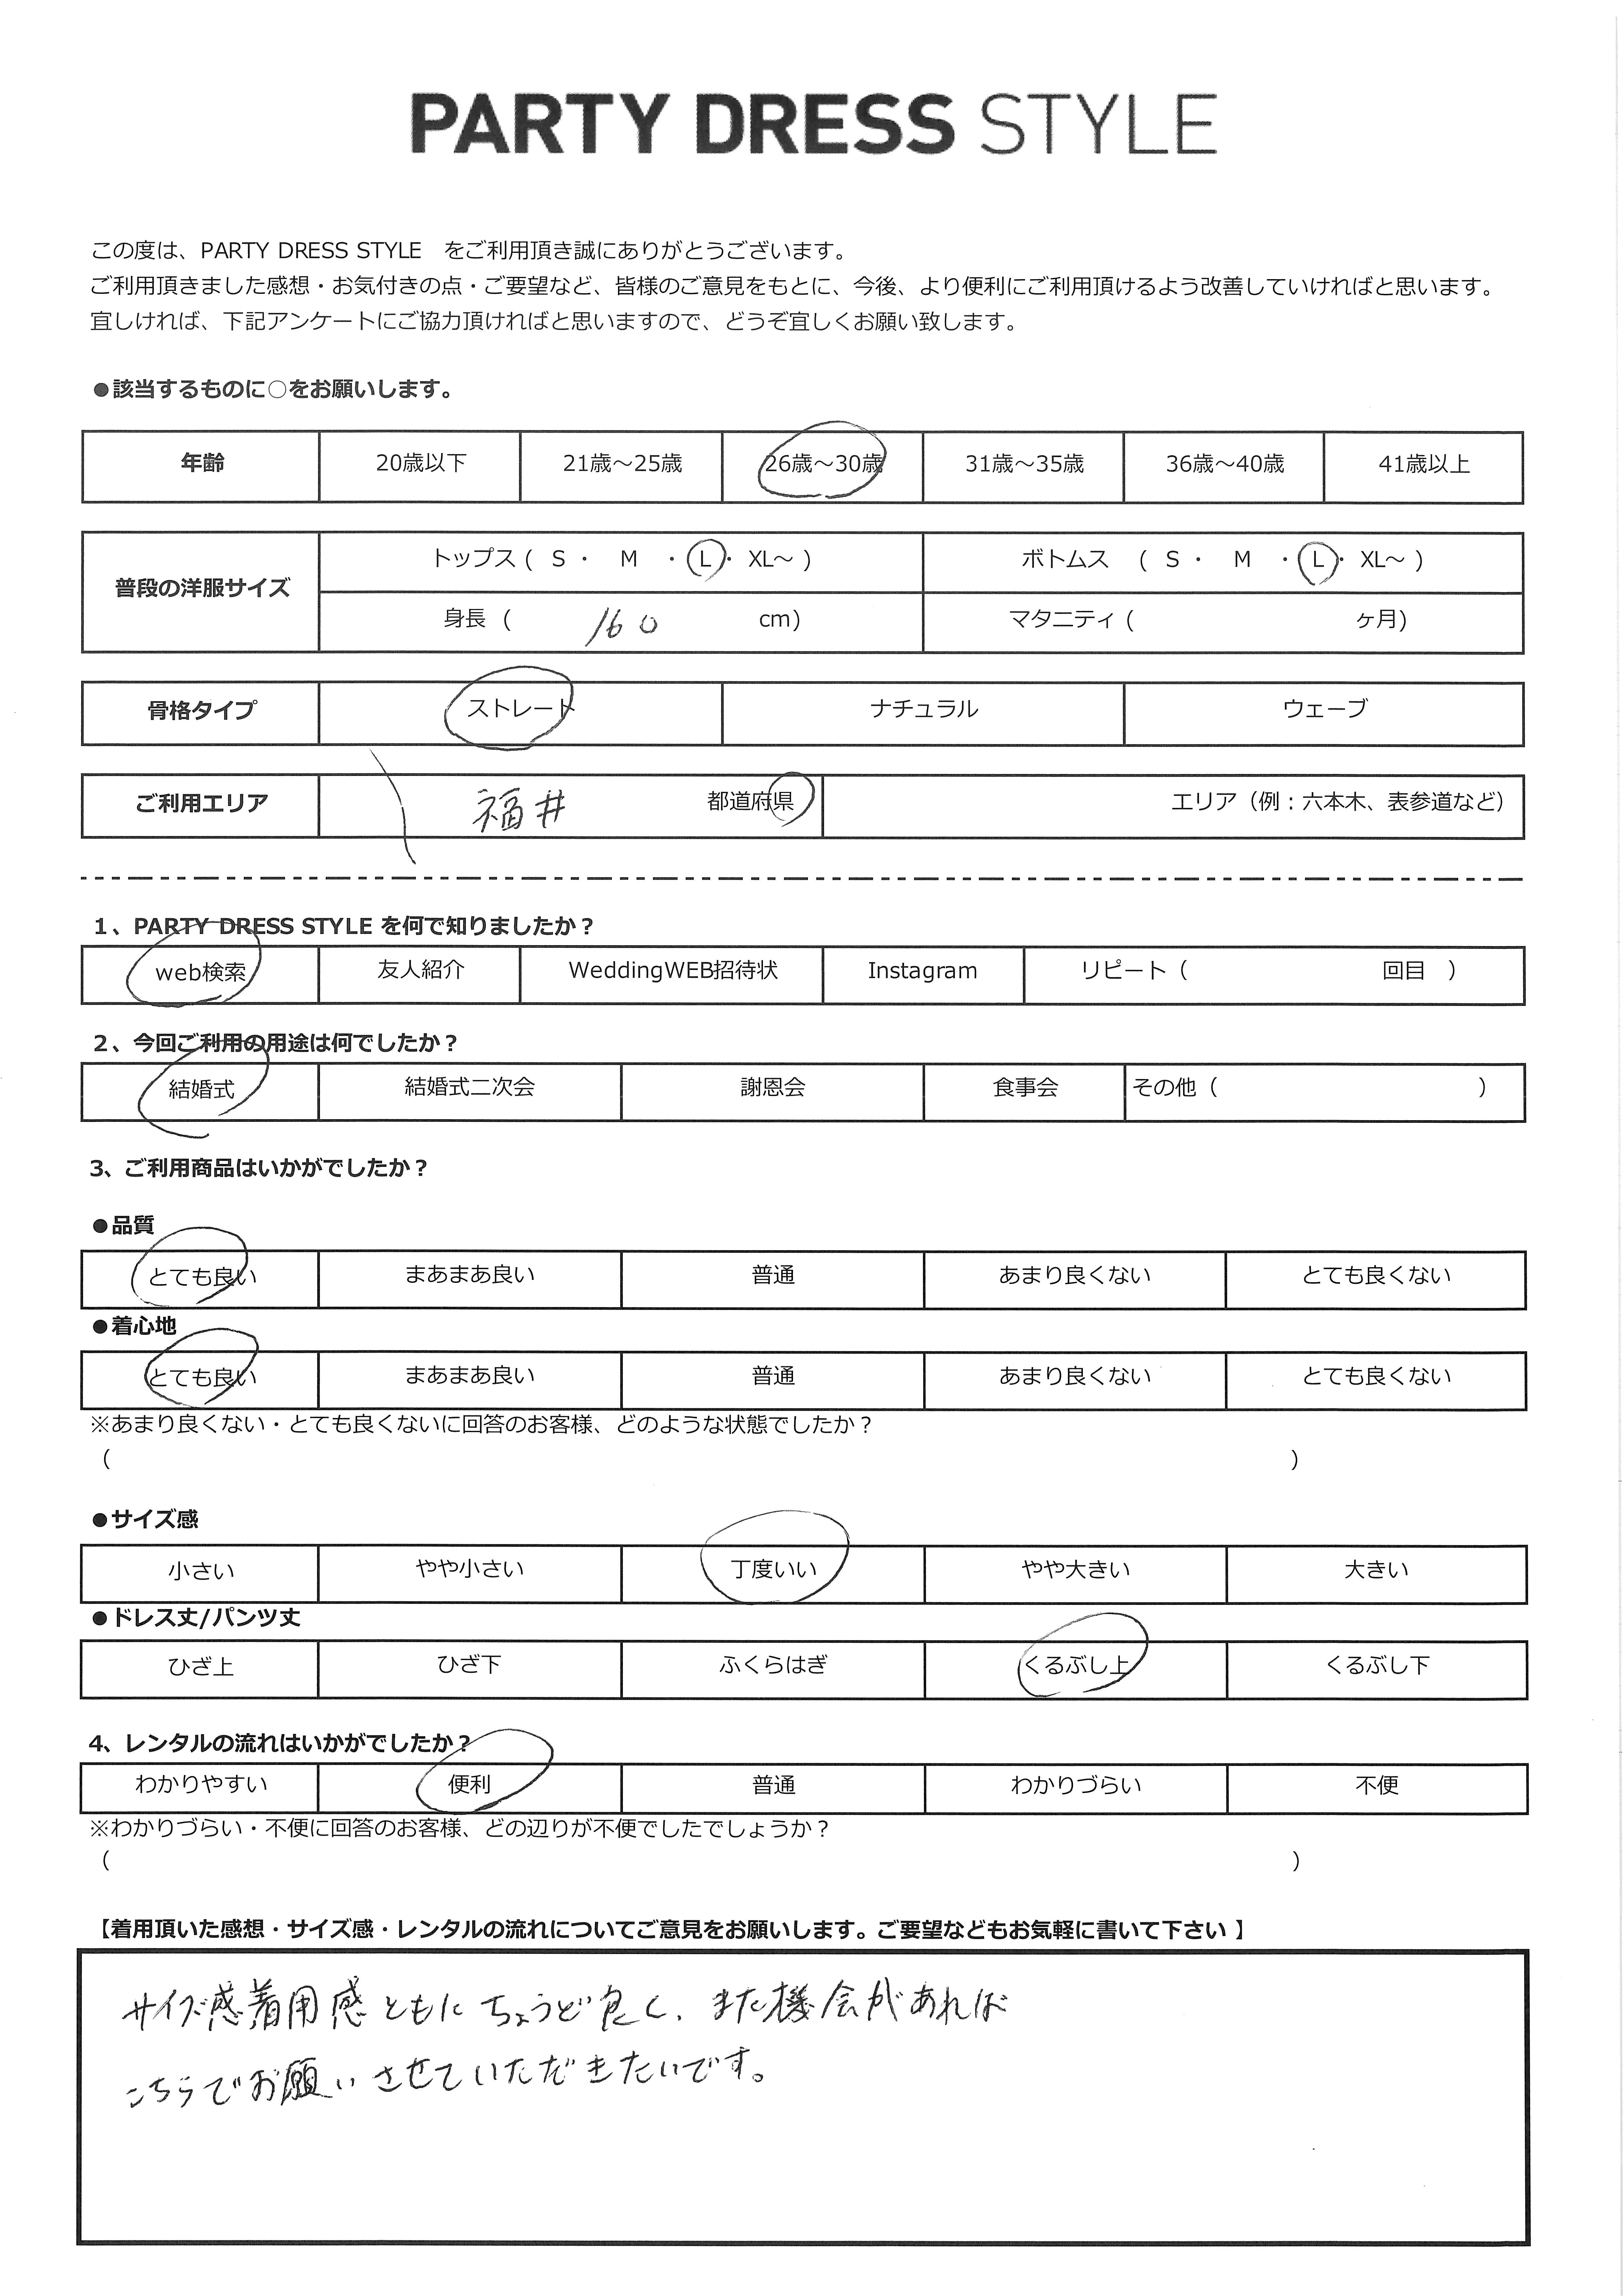 PARTY DRESS STYLE
この度は、PARTY DRESS STYLE　をご利用頂き誠にありがとうございます。
ご利用頂きました感想・お気付きの点・ご要望など、皆様のご意見をもとに、今後、より便利にご利用頂けるよう改善していければと思います。
宜しければ、下記アンケートにご協力頂ければと思いますので、どうぞ宜しくお願い致します。
●該当するものに○をお願いします。
年齢 20歳以下 21歳～25歳 26歳～30歳 31歳～35歳 36歳～40歳 41歳以上
普段の洋服サイズ
トップス ( S ・ M ・ L ・ XL～ ) ボトムス ( S ・ M ・ L ・ XL～ )
身長 ( 160 cm) マタニティ ( ヶ月)
骨格タイプ ストレート ナチュラル ウェーブ
ご利用エリア 福井 都道府県 エリア（例：六本木、表参道など）
1、PARTY DRESS STYLE を何で知りましたか？
web検索 友人紹介 WeddingWEB招待状 Instagram リピート（ 回目 ）
2、今回ご利用の用途は何でしたか？
結婚式 結婚式二次会 謝恩会 食事会 その他（ ）
3、ご利用商品はいかがでしたか？
●品質
とても良い まあまあ良い 普通 あまり良くない とても良くない
●着心地
とても良い まあまあ良い 普通 あまり良くない とても良くない
※あまり良くない・とても良くないに回答のお客様、どのような状態でしたか？
（ ）
●サイズ感
小さい やや小さい 丁度いい やや大きい 大きい
●ドレス丈/パンツ丈
ひざ上 ひざ下 ふくらはぎ くるぶし上 くるぶし下
4、レンタルの流れはいかがでしたか？
わかりやすい 便利 普通 わかりづらい 不便
※わかりづらい・不便に回答のお客様、どの辺りが不便でしたでしょうか？
（ ）
【着用頂いた感想・サイズ感・レンタルの流れについてご意見をお願いします。ご要望などもお気軽に書いて下さい 】
サイズ感着用感ともにちょうど良く、また機会があれば
こちらでお願いさせていただきたいです。